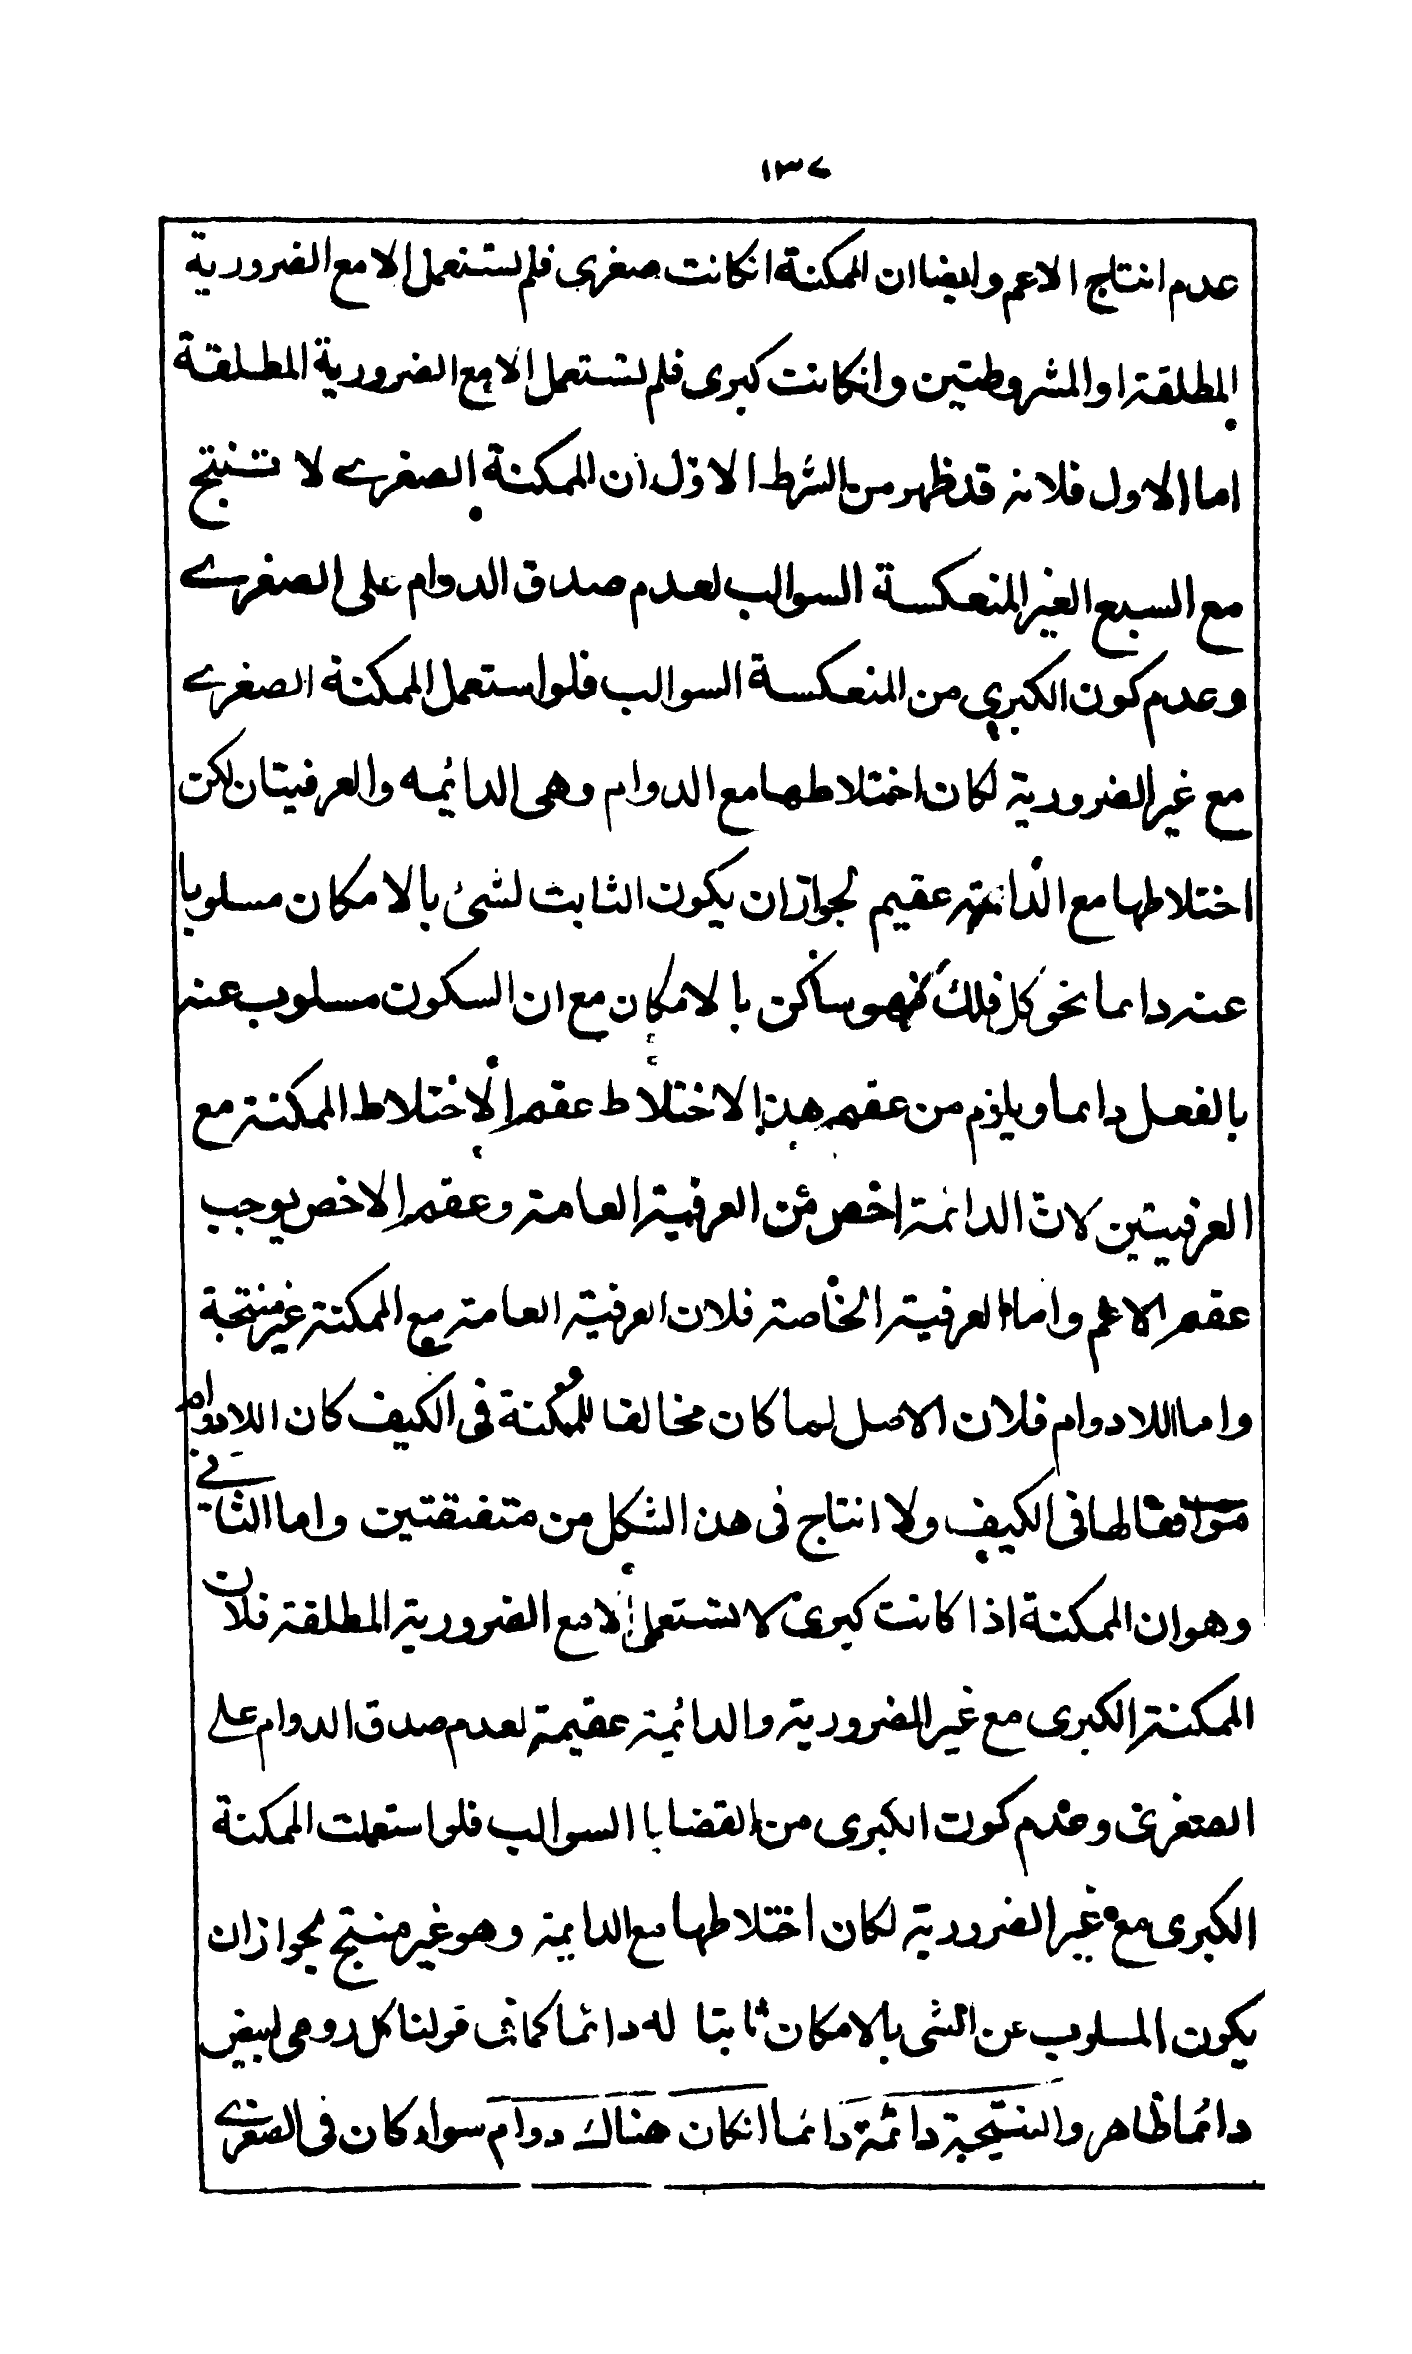 ١٣٧
عدم انتاج الاعم وايضا ان الممكنة انكانت صغرى فلم تستعمل الا مع الضرورية
المطلقة او المشروطتين وانكانت كبرى فلم تستعمل الا مع الضرورية المطلقة
اما الاول فلانه قد ظهر من الشرط الاوّل ان الممكنة الصغرے لا تنتج
مع السبع الغير المنعكسة السوالب لعدم صدق الدوام على الصغرے
وعدم كون الكبرى من المنعكسة السوالب فلو استعمل الممكنة الصغرے
مع غير الضرورية لكان اختلاطها مع الدوام وهى الدائمه والعرفيتان لكن
اختلاطها مع الدائمة عقيم لجواز ان يكون الثابت لشئ بالامكان مسلوبا
عنه دايما نحو كل فلك فهو ساكن بالامكان مع ان السكون مسلوب عنه
بالفعل دايما ويلزم من عقم هذا الاختلاط عقم الاختلاط الممكنة مع
العرفيتين لانّ الدائمة اخص من العرفية العامة وعقم الاخص يوجب
عقم الاعم واما العرفية الخاصة فلان العرفية العامة مع الممكنة غير منتجة
واما اللادوام فلان الاصل لما كان مخالفا للممكنة فى الكيف كان اللادوام
موافقا لها فى الكيف ولا انتاج فى هذا الشكل من متفقتين واما الثانے
وهو ان الممكنة اذا كانت كبرى لا تستعمل الا مع الضرورية المطلقة فلان
الممكنة الكبرى مع غير الضرورية والدائمية عقيمة لعدم صدق الدوام علے
الصغرى وعدم كون الكبرى من القضايا السوالب فلو استعملت الممكنة
الكبرى مع غير الضرورية لكان اختلاطها مع الدايمة وهو غير منتج لجواز ان
يكون المسلوب عن الشى بالامكان ثابتا له دائما كما فى قولنا كل رومى ابيض
دائما ظاهر والنتيجة دائمة دائما انكان هناك دوام سواء كان فى الصغرے